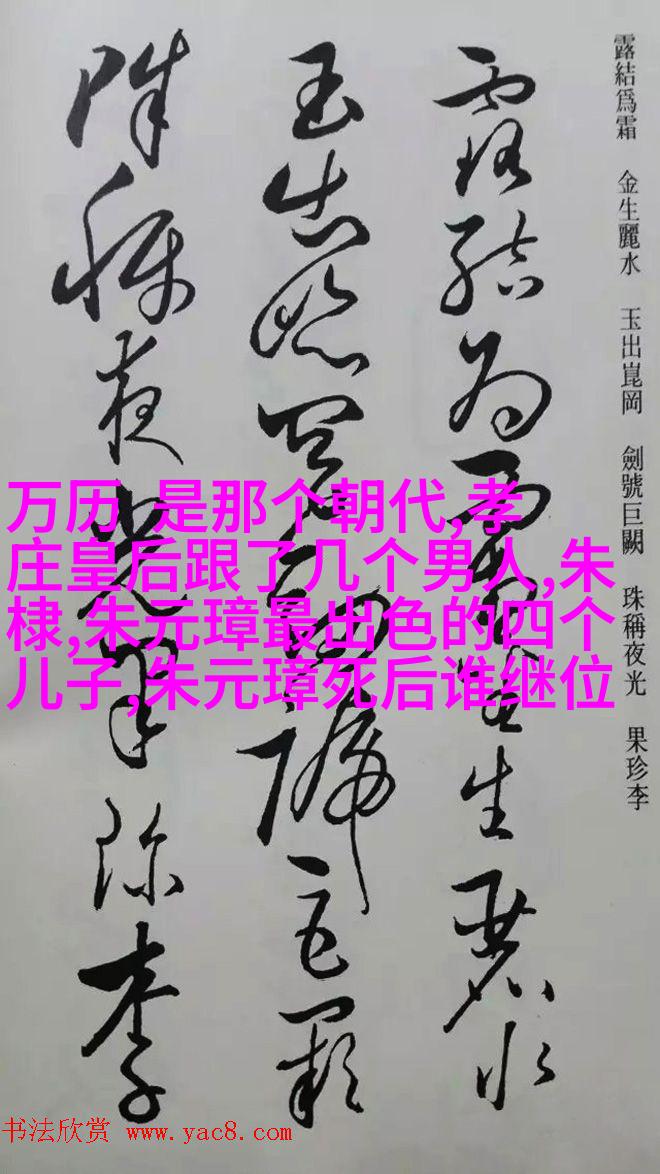 露結爲霜 金生麗水 玉出崑岡 劍號巨闕 珠稱夜光 果珍李
露结为霜金生丽水
玉出崑岡劍號巨闕
珠稱夜光果珍李
万历 是那个朝代,孝
庄皇后跟了几个男人,朱
棣,朱元璋最出色的四个
儿子,朱元璋死后谁继位
书法欣赏 www.yac8.com